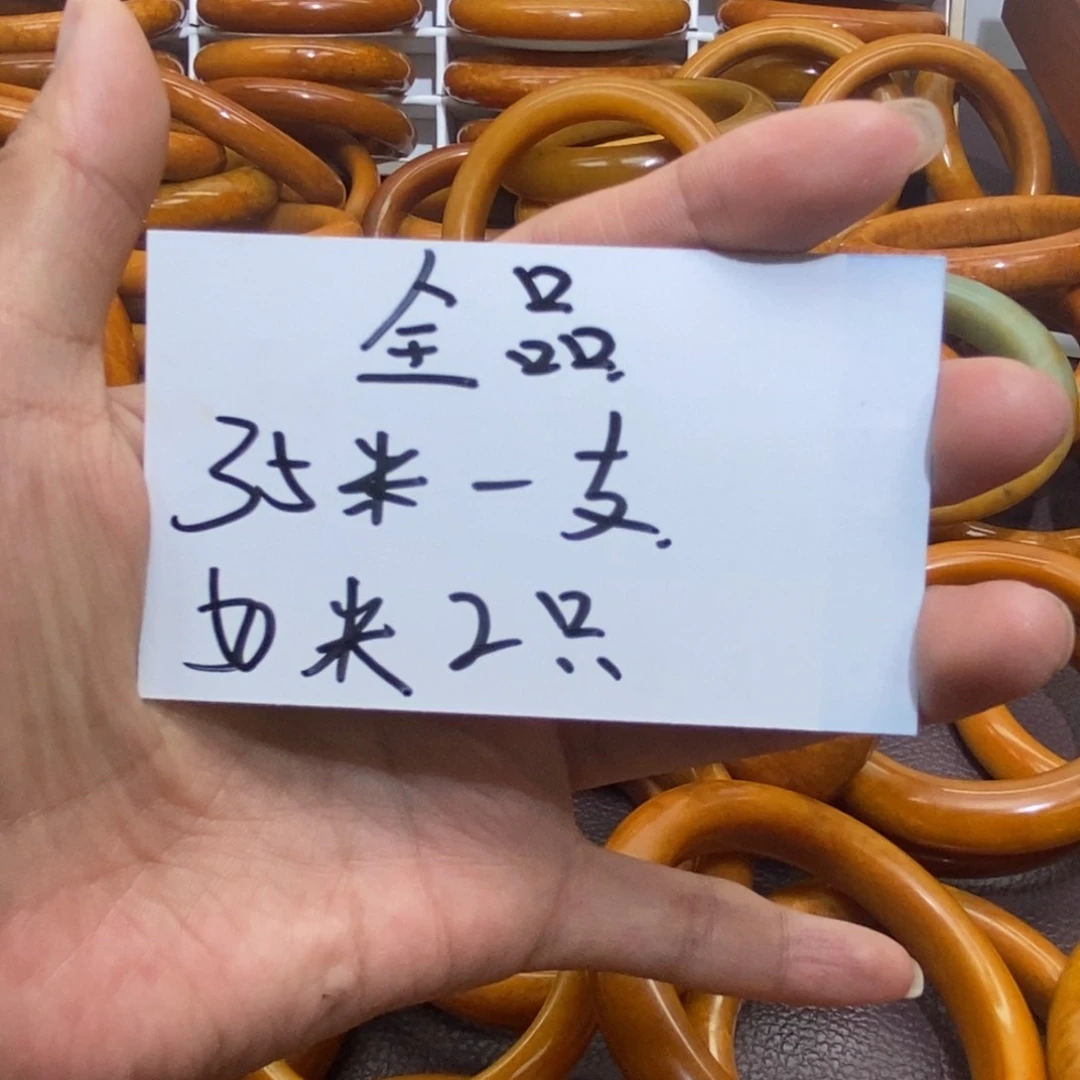 全品.
35米一支.
如米2只